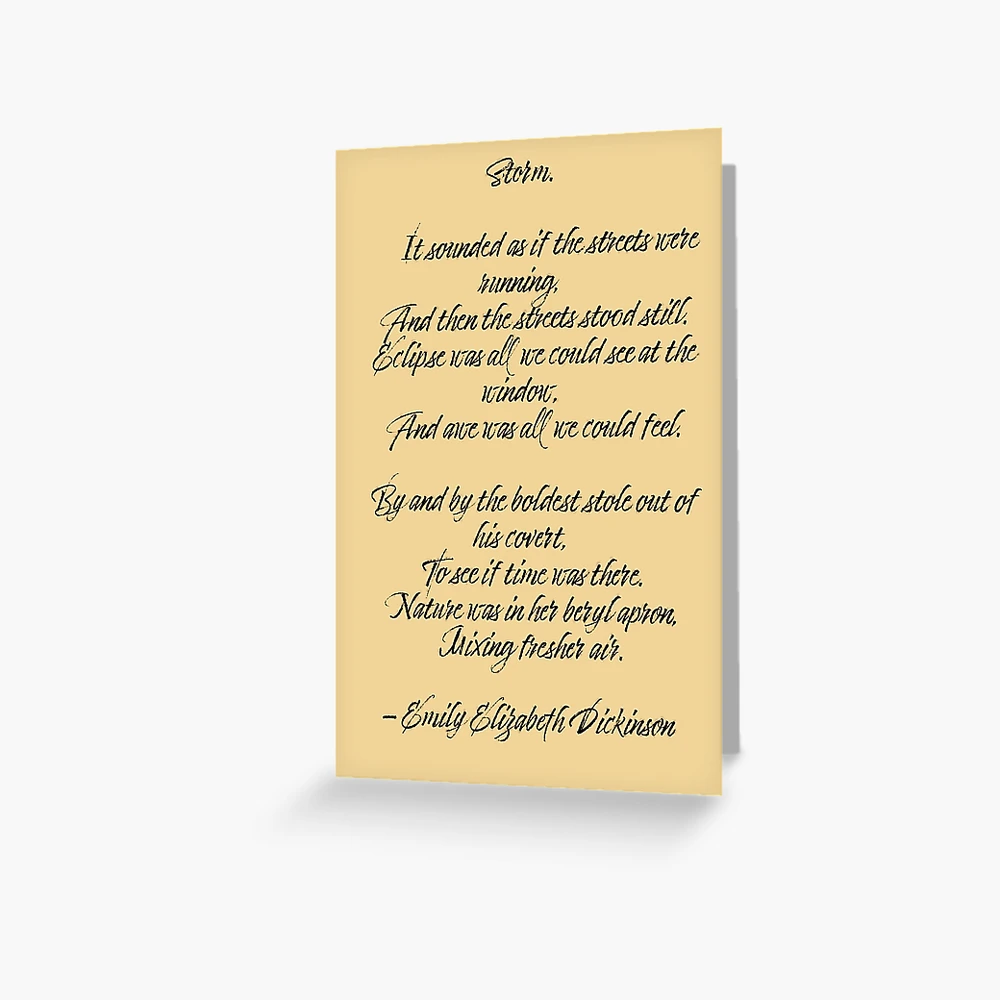 Storm.
It sounded as if the streets were
running,
And then the streets stood still.
Eclipse was all we could see at the
window,
And awe was all we could feel.
By and by the boldest stole out of
his covert,
To see if time was there.
Nature was in her beryl apron,
Mixing fresher air.
– Emily Elizabeth Dickinson